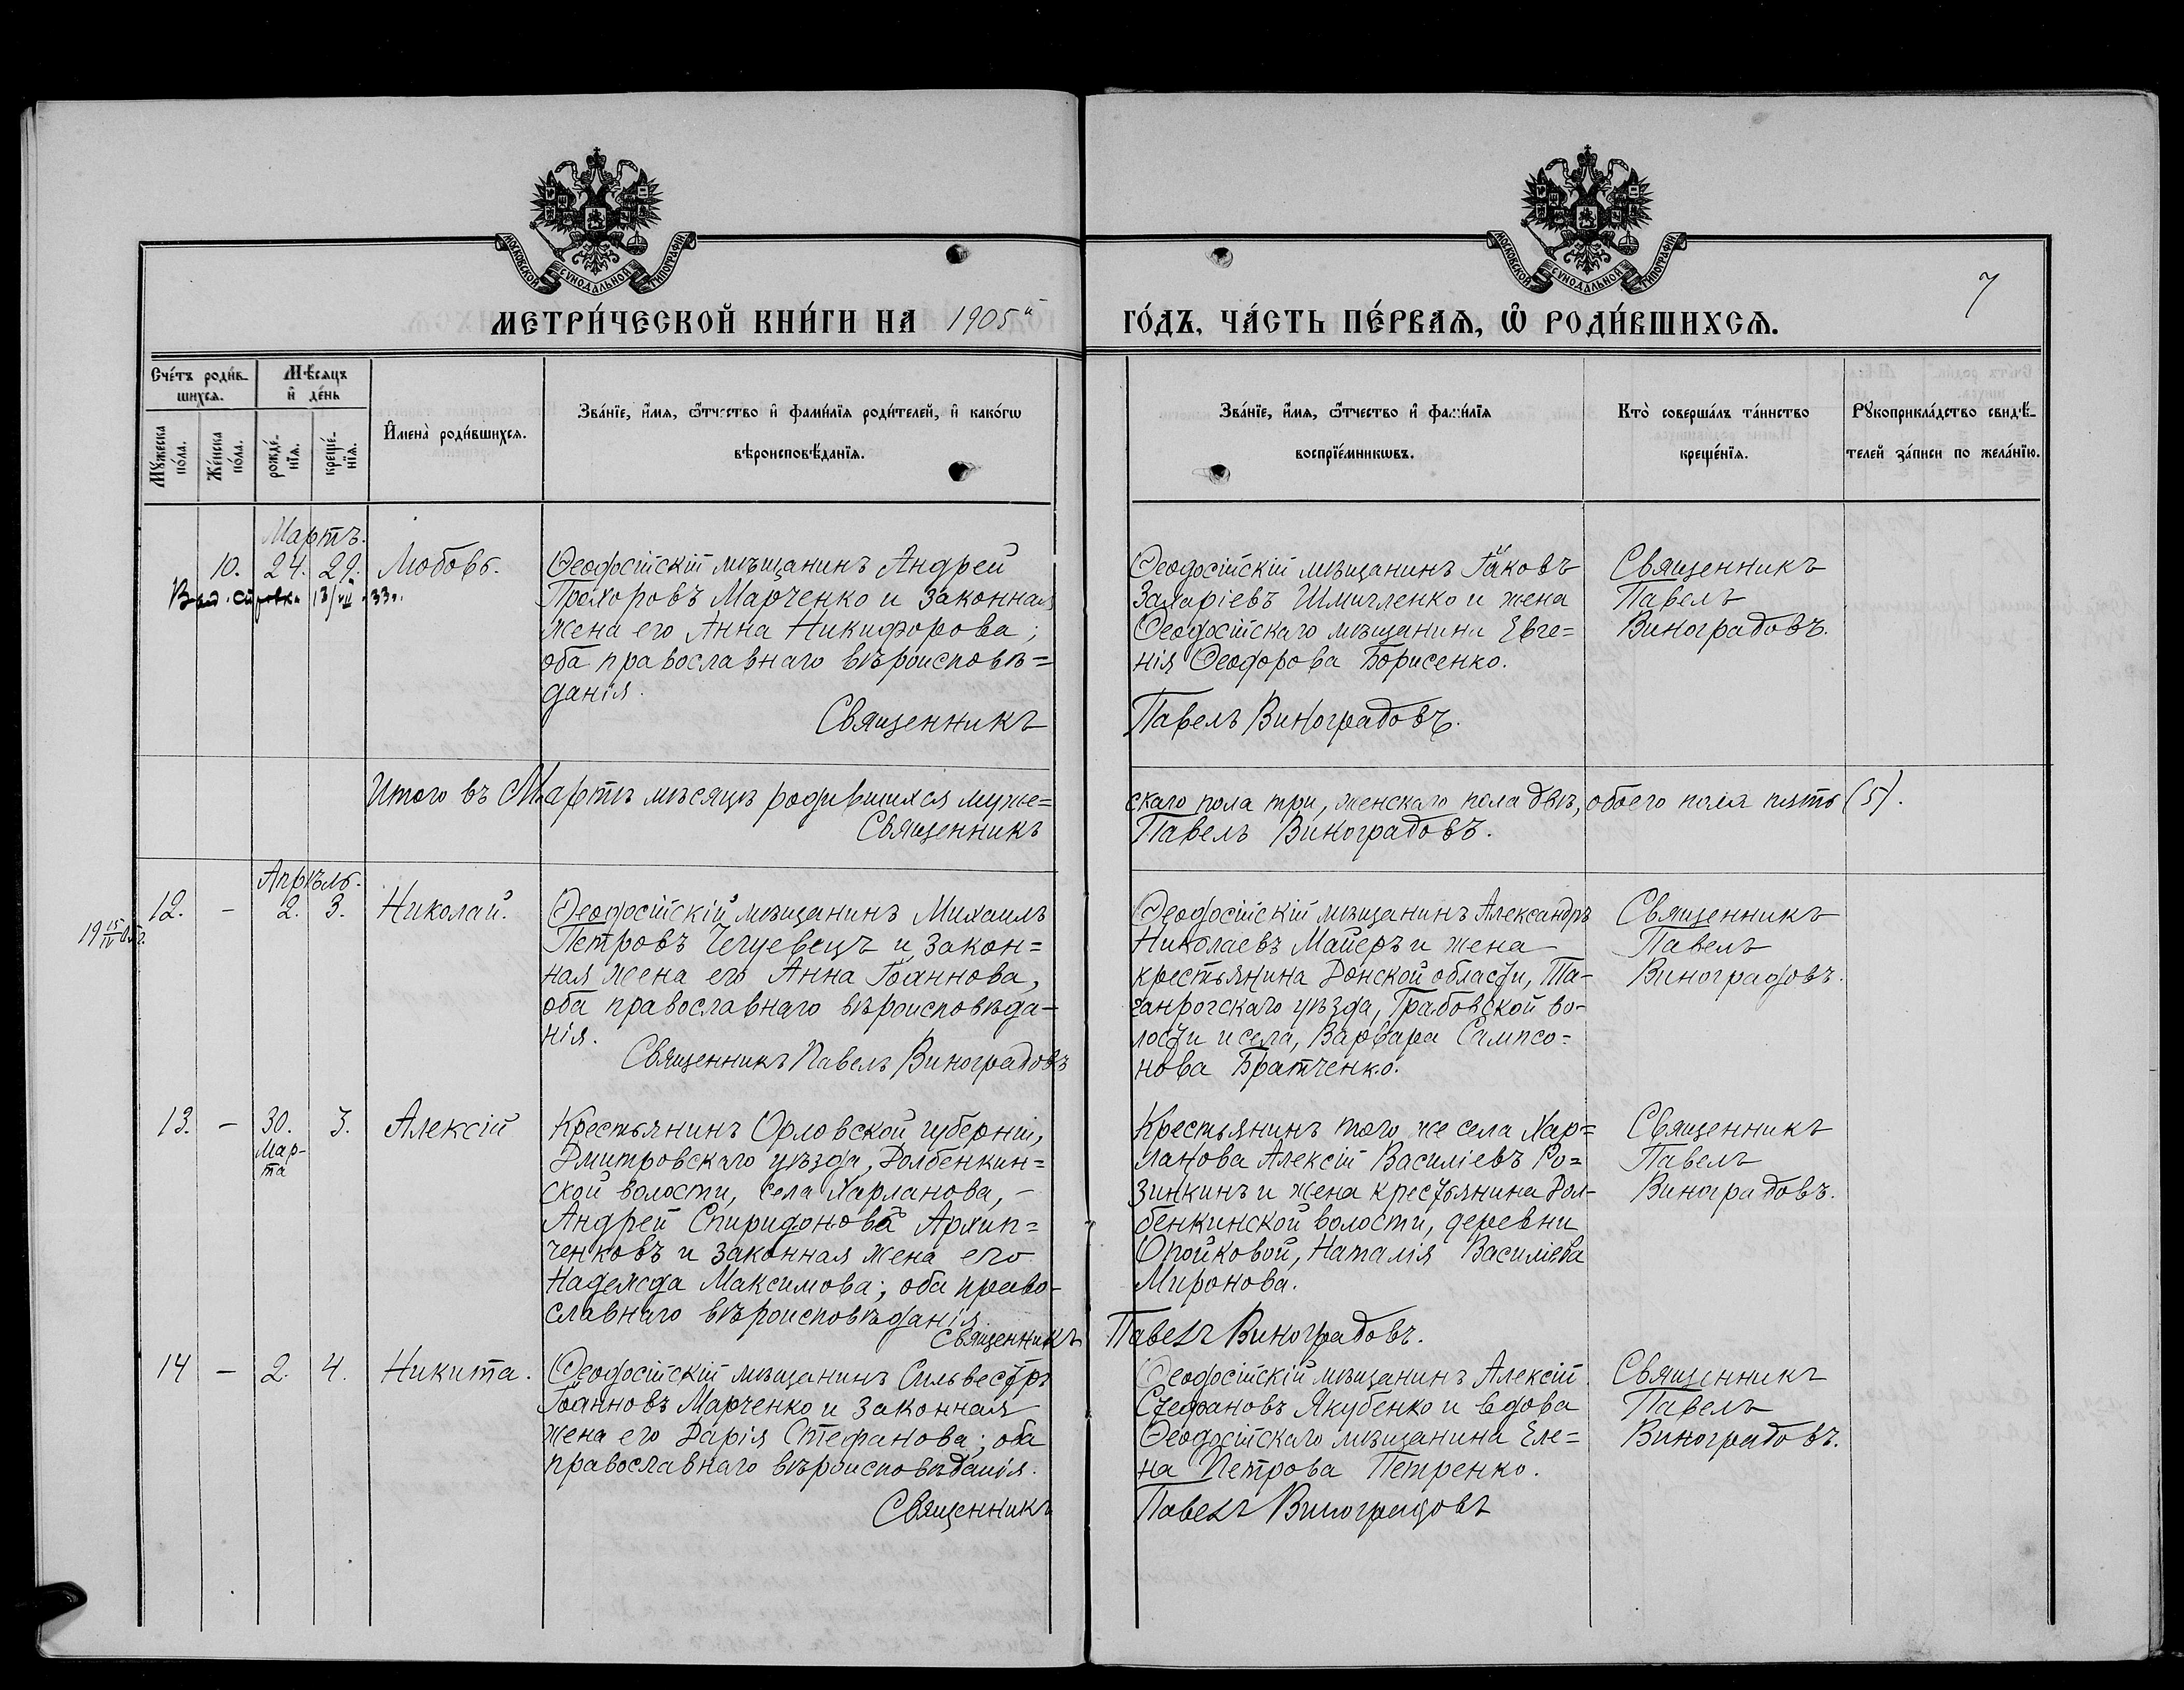 МОСКОВСКОЙ СѴНОДАЛЬНОЙ ТИПОГРАФІИ
МОСКОВСКОЙ СѴНОДАЛЬНОЙ ТИПОГРАФІИ
7
МЕТРИ́ЧЕСКОЙ КНИ́ГИ НА 1905й
ГО́ДЪ, ЧА́СТЬ ПЕ́РВАѦ, Ѡ҆ РОДИ́ВШИХСѦ.
Сче́тъ роди́в-
шихсѧ.
Мѣ́сѧцъ
и҆ де́нь
Мꙋ́жеска по́ла.
Же́нска по́ла.
рожде́-
нїѧ.
креще́-
нїѧ.
И҆мена̀ роди́вшихсѧ.
Зва́нїе, и҆́мѧ, ѻ҆́тчество и҆ фами́лїѧ роди́телей, и҆ како́гѡ
вѣроисповѣ́данїѧ.
Зва́нїе, и҆́мѧ, ѻ҆́тчество и҆ фами́лїѧ
воспрїе́мникѡвъ.
Кто̀ соверша́лъ та́инство
креще́нїѧ.
Рꙋкоприкла́дство свидѣ́-
телей за́писи по жела́нїю.
Мартъ.
10. 24. 29. Любовь.
13/VII 33г.
Ѳеодосійскій мѣщанинъ Андрей
Прохоровъ Марченко и законная
жена его Анна Никифорова;
оба православнаго вѣроисповѣ=
данія.
Священникъ
Ѳеодосійскій мѣщанинъ Іаковъ
Захаріевъ Шмигленко и жена
Ѳеодосійскаго мѣщанина Евге=
нія Ѳеодорова Борисенко.
Павелъ Виноградовъ.
Священникъ
Павелъ
Виноградовъ.
Итого въ Мартѣ мѣсяцѣ родившихся муже=
Священникъ
скаго пола три, женскаго пола двѣ, обоего пола пять (5).
Павелъ Виноградовъ.
Апрѣль.
12. - 2. 3. Николай.
Ѳеодосійскій мѣщанинъ Михаилъ
Петровъ Чегуевецъ и закон=
ная жена его Анна Іоаннова,
оба православнаго вѣроисповѣда-
нія.
Священникъ Павелъ Виноградовъ
Ѳеодосійскій мѣщанинъ Александръ
Николаевъ Майеръ и жена
крестьянина Донской области, Та-
ганрогскаго уѣзда, Грабовской во-
лости и села, Варвара Сампсо=
нова Братченко.
Священникъ
Павелъ
Виноградовъ.
13. - 30. 3. Алексій
Мар-
та
Крестьянинъ Орловской губерніи,
Дмитровскаго уѣзда, Долбенкин=
ской волости, села Харланова, -
Андрей Спиридоновъ Архип=
ченковъ и законная жена его
Надежда Максимова; оба право-
славнаго вѣроисповѣданія.
Священникъ
Крестьянинъ того же села Хар=
ланова Алексій Василіевъ Ро=
зинкинъ и жена крестьянина Дол-
бенкинской волости, деревни
Опойковой, Наталія Василіева
Миронова.
Павелъ Виноградовъ.
Священникъ
Павелъ
Виноградовъ.
14 - 2. 4. Никита.
Ѳеодосійскій мѣщанинъ Сильвестръ
Іоанновъ Марченко и законная
жена его Дарія Стефанова; оба
православнаго вѣроисповѣданія.
Священникъ
Ѳеодосійскій мѣщанинъ Алексій
Стефановъ Якубенко и вдова
Ѳеодосійскаго мѣщанина Еле=
на Петрова Петренко.
Павелъ Виноградовъ
Священникъ
Павелъ
Виноградовъ.